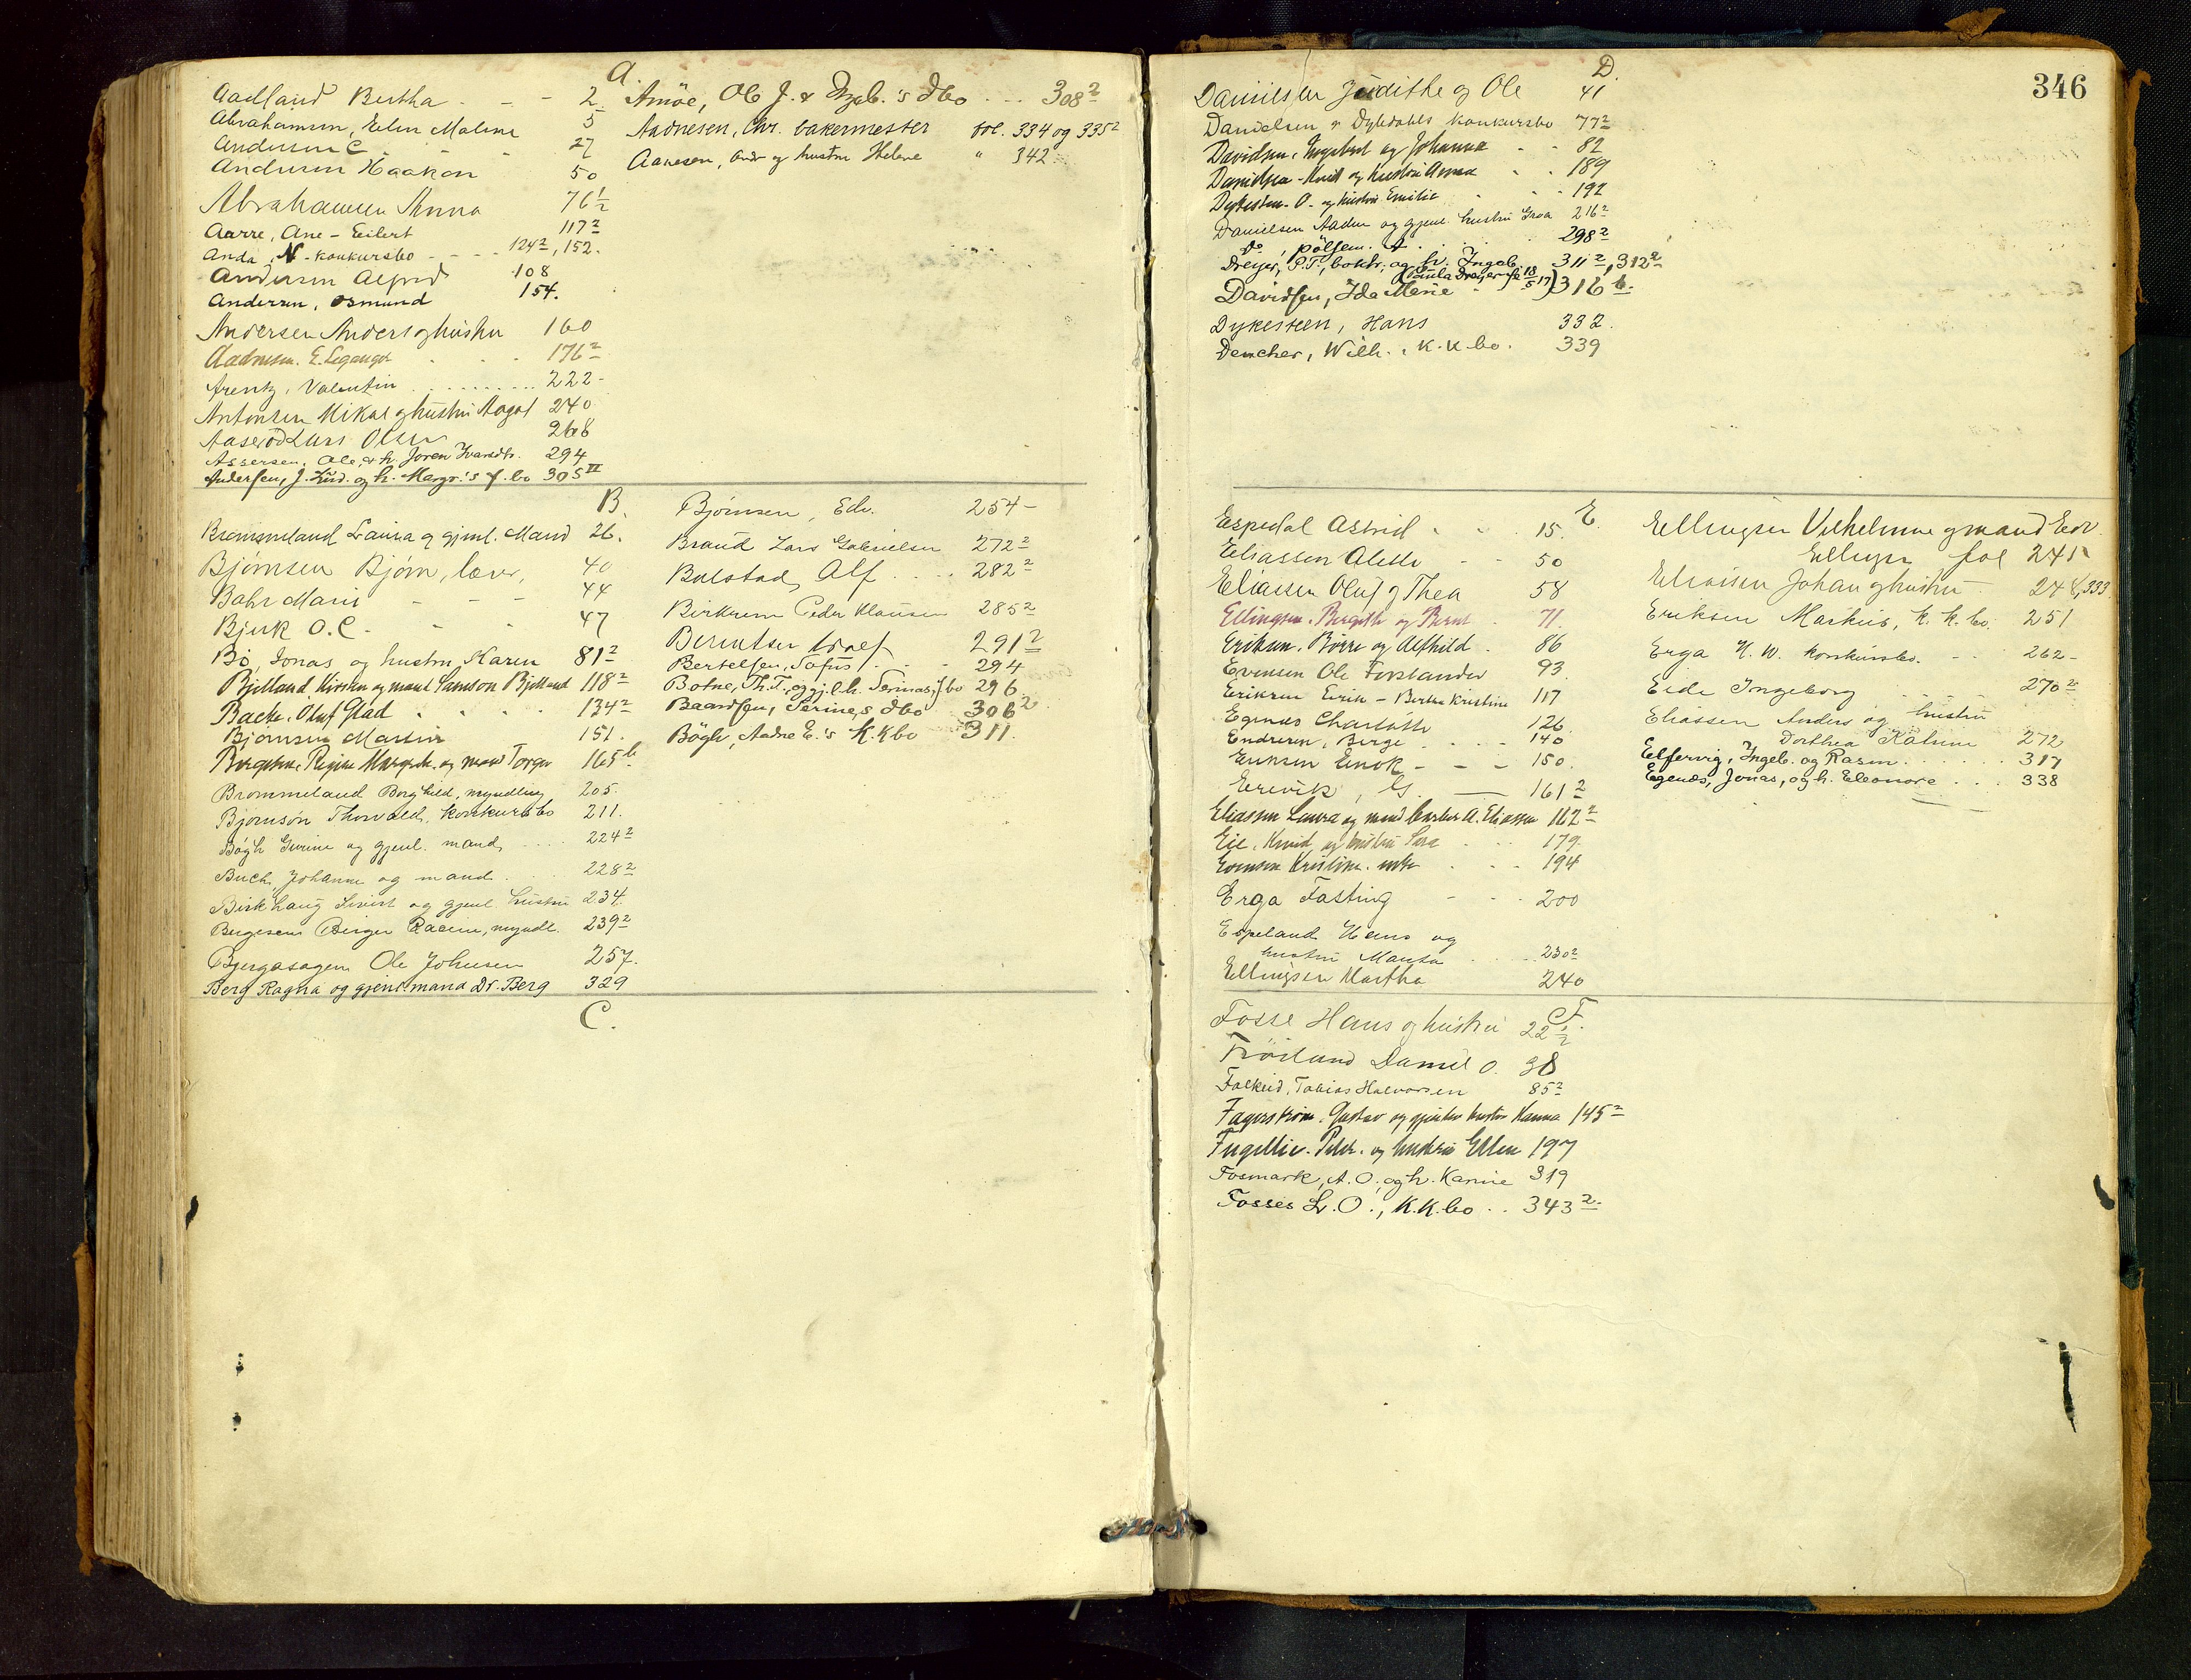 A.
Aadland Bertha - - - 2.
Abrahamsen, Elen Malene 5
Andersen C - - - 27
Andersen Haakon 50
Abrahamsen Anna 76½
Aarre, Ane - Eilert 117²
Anda, N - konkursbo - - - - 124², 152.
Andersen Alfred 108
Andersen, Osmund 154.
Andersen Anders og hustru 160
Aadnesen. E. Leganger - - - 176²
Arentz, Valentin ......... 222-
Antonsen Mikal og hustru Aagot 240
Aaserød Lars Olsen 268
Assersen, Ole, & h. Joren Ivarsdtr. 294
Andersen, J. Lud. og h. Margr.'s f. bo 305 II
Amöe, Ole J. & Ingeb.'s dbo ... 308²
Aadnesen, Chr. bakermester fol. 334 og 335²
Aanesen, Andr og hustru Helene " 342
B.
Brommeland Laura og gjenl. Mand 26.
Bjørnsen Bjørn, lærer, 40
Bahr Marie - - - 44
Bjerk O.C. - - - 47
Bö, Jonas og hustru Karen 81²
Bjelland Kirsten og mand Samson Bjelland 118²
Backe. Oluf Glad . . . . 134²
Bjørnsen Martin 151.
Bergesen, Regine Margrete. og mand Torger 165b
Brommeland Borghild, myndling 205.
Bjørnson Thorvald, konkursbo 211.
Bøgh Gurine og gjenl. mand .... 224²
Buch, Johanne og mand . . 228²
Birkhaug Sivert og gjenl. hustru 234.
Bergesen Birger Racine, myndl. 239²
Bjergasagen Ole Johnsen 257.
Berg Ragna og gjenl. mand Dr. Berg 329
Bjørnsen, Edv. 254-
Braud Lars Gabrielsen 272²
Bulstad, Alf . . . . 282²
Birkrem Peder Klausen 285²
Berentsen Israel 291²
Bertelsen, Sofus . . . 294
Botne, Th. T., og gj.l. h. Serinas f bo 296
Baardsen, Serine,s dbo 306²
Bögh, Aadne E.'s K.K bo 311.
C.
346
D.
Danielsen Judithe og Ole 41
Danielsen & Dybdahls konkursbo 77²
Davidsen, Ingebret og Johanna - - 82
Davidsen - Knud og hustru Anna . . 189
Dyksten. O. og hustru Emilie . . . 192
Danielsen Aaden og gjenl. hustru Groa 216²
Do, pölsem. A. . . . . 298²
Dreyer, P.T., boktr. og h. Ingeb. 311², 312²
(Paula Dreyer f. 18/5 17)
Davidsen, Ida Marie 316 b.
Dykesteen, Hans 332.
Dencher, Wilh., K.K. bo. 339
E.
Espedal Astrid - - - 15.
Eliassen Alette - - 50
Eliassen Oluf og Thea 58
Ellingsen. Bergithe og Bernt . 71.
Eriksen. Børre og Alfhild . 86
Evensen Ole Forslander 93
Eriksen Eerik - Bertha Kristine 117
Egenæs Charlotte 126
Endresen, Berge . . . . 140
Eriksen Enok - - - 150.
Ereviik, G. — 161²
Eliassen Laura og mand Carsten A. Eliassen 162²
Eie. Knud og hustru Sara . . 179.
Evensen Kristine. enke . . . 194
Erga Fasting - - . 200
Espeland Hans og
hustru Manda . . . . 230²
Ellingsen Martha 240
Ellingsen Vilhelmine og mand Edv.
Ellingsen fol 241
Eliasen Johan og hustru 248, 333
Eriksen Markus, k. k. bo. 251
Erga N. W. konkursbo. - - 262-
Eide Ingeborg . . . . 270²
Eliassen Anders og hustru
Dorthea Katrine 272
Elfervig, Ingeb. og Rasm. . . . . . 317
Egenæs, Jonas, og h. Eleonore . . . 338
F.
Fosse Hans og hustru 22½
Frøiland Daniel O. 38
Falkeid, Tobias Halvorsen 85²
Fagerstrøm. Gustav og gjenlev hustru Hanna 145²
Fugellie. Peder. og hustru Ellen 197
Fosmark, A. O., og h. Karine 319
Fosses L. O., K.K. bo . . 343²